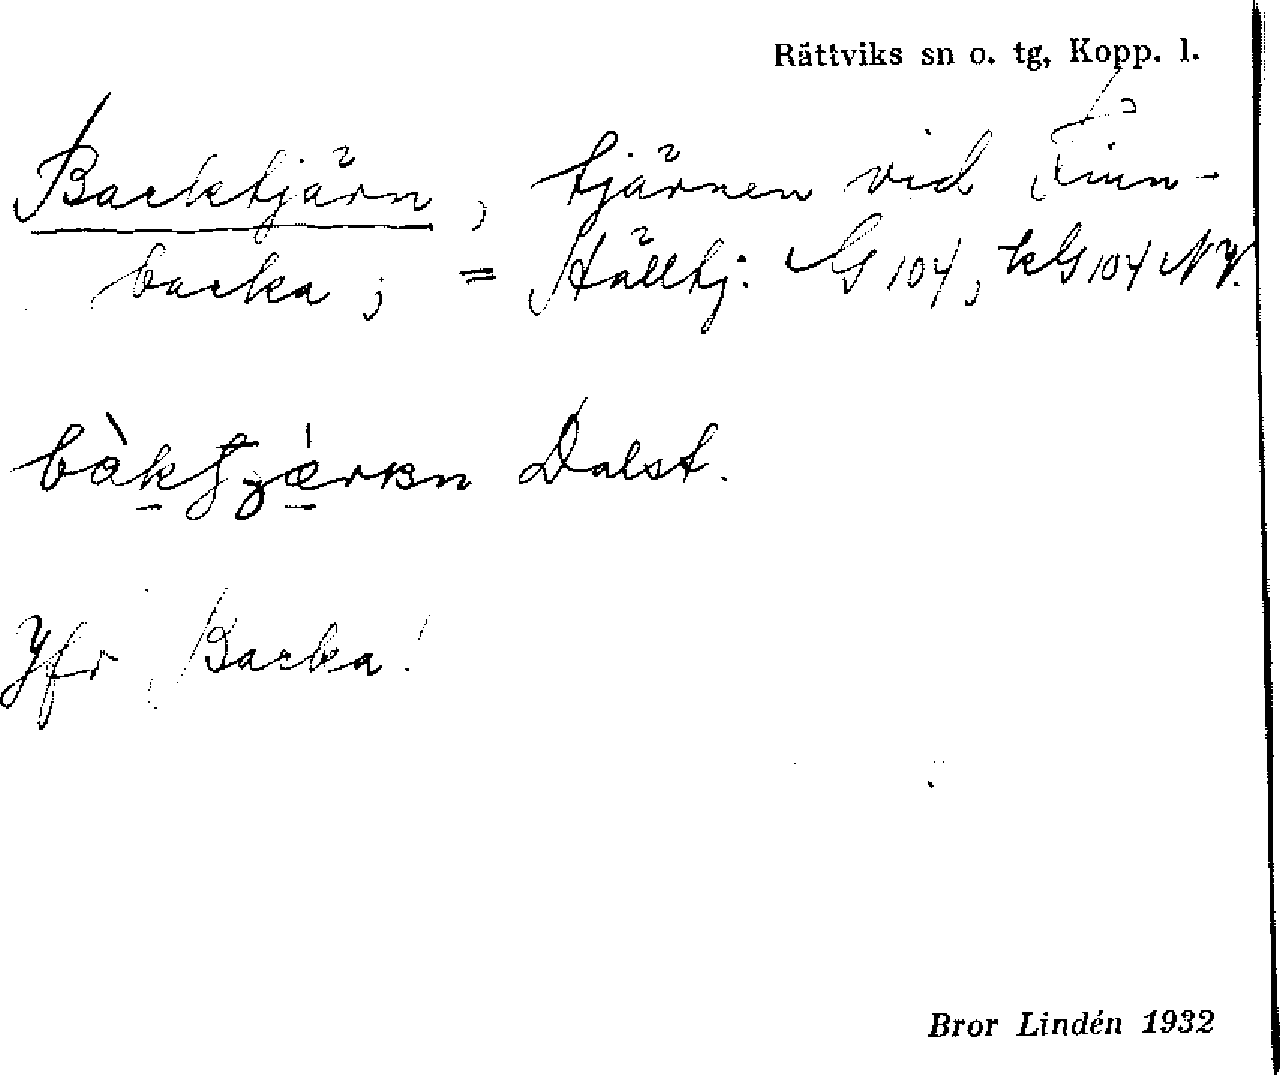 Rättviks sn o. tg, Kopp. l.
Backtjärn, tjärnen vid Finn-
backa; = Hälltj. G 104, kG 104 NV.
Dalst.
Jfr Backa!
Bror Lindén 1932